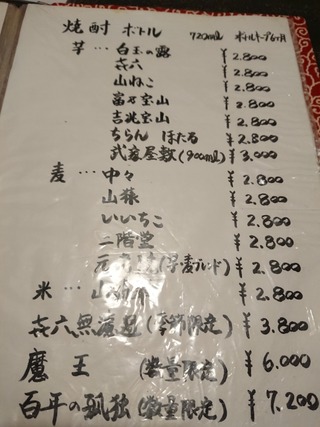 焼酎 ボトル 720ml ボトルキープ6ヶ月
芋…白玉の露 ¥2.800
㐂六 ¥2.800
山ねこ ¥2.800
富乃宝山 ¥2.800
吉兆宝山 ¥2.800
ちらん ほたる ¥2.800
武家屋敷(900ml) ¥3.000
麦…中々 ¥2.800
山猿 ¥2.800
いいちこ ¥2.800
二階堂 ¥2.800
(芋・麦ブレンド) ¥2.800
米… ¥2.800
㐂六無濾過(季節限定) ¥3.800
魔王 (数量限定) ¥6.000
百年の孤独(数量限定) ¥7.200